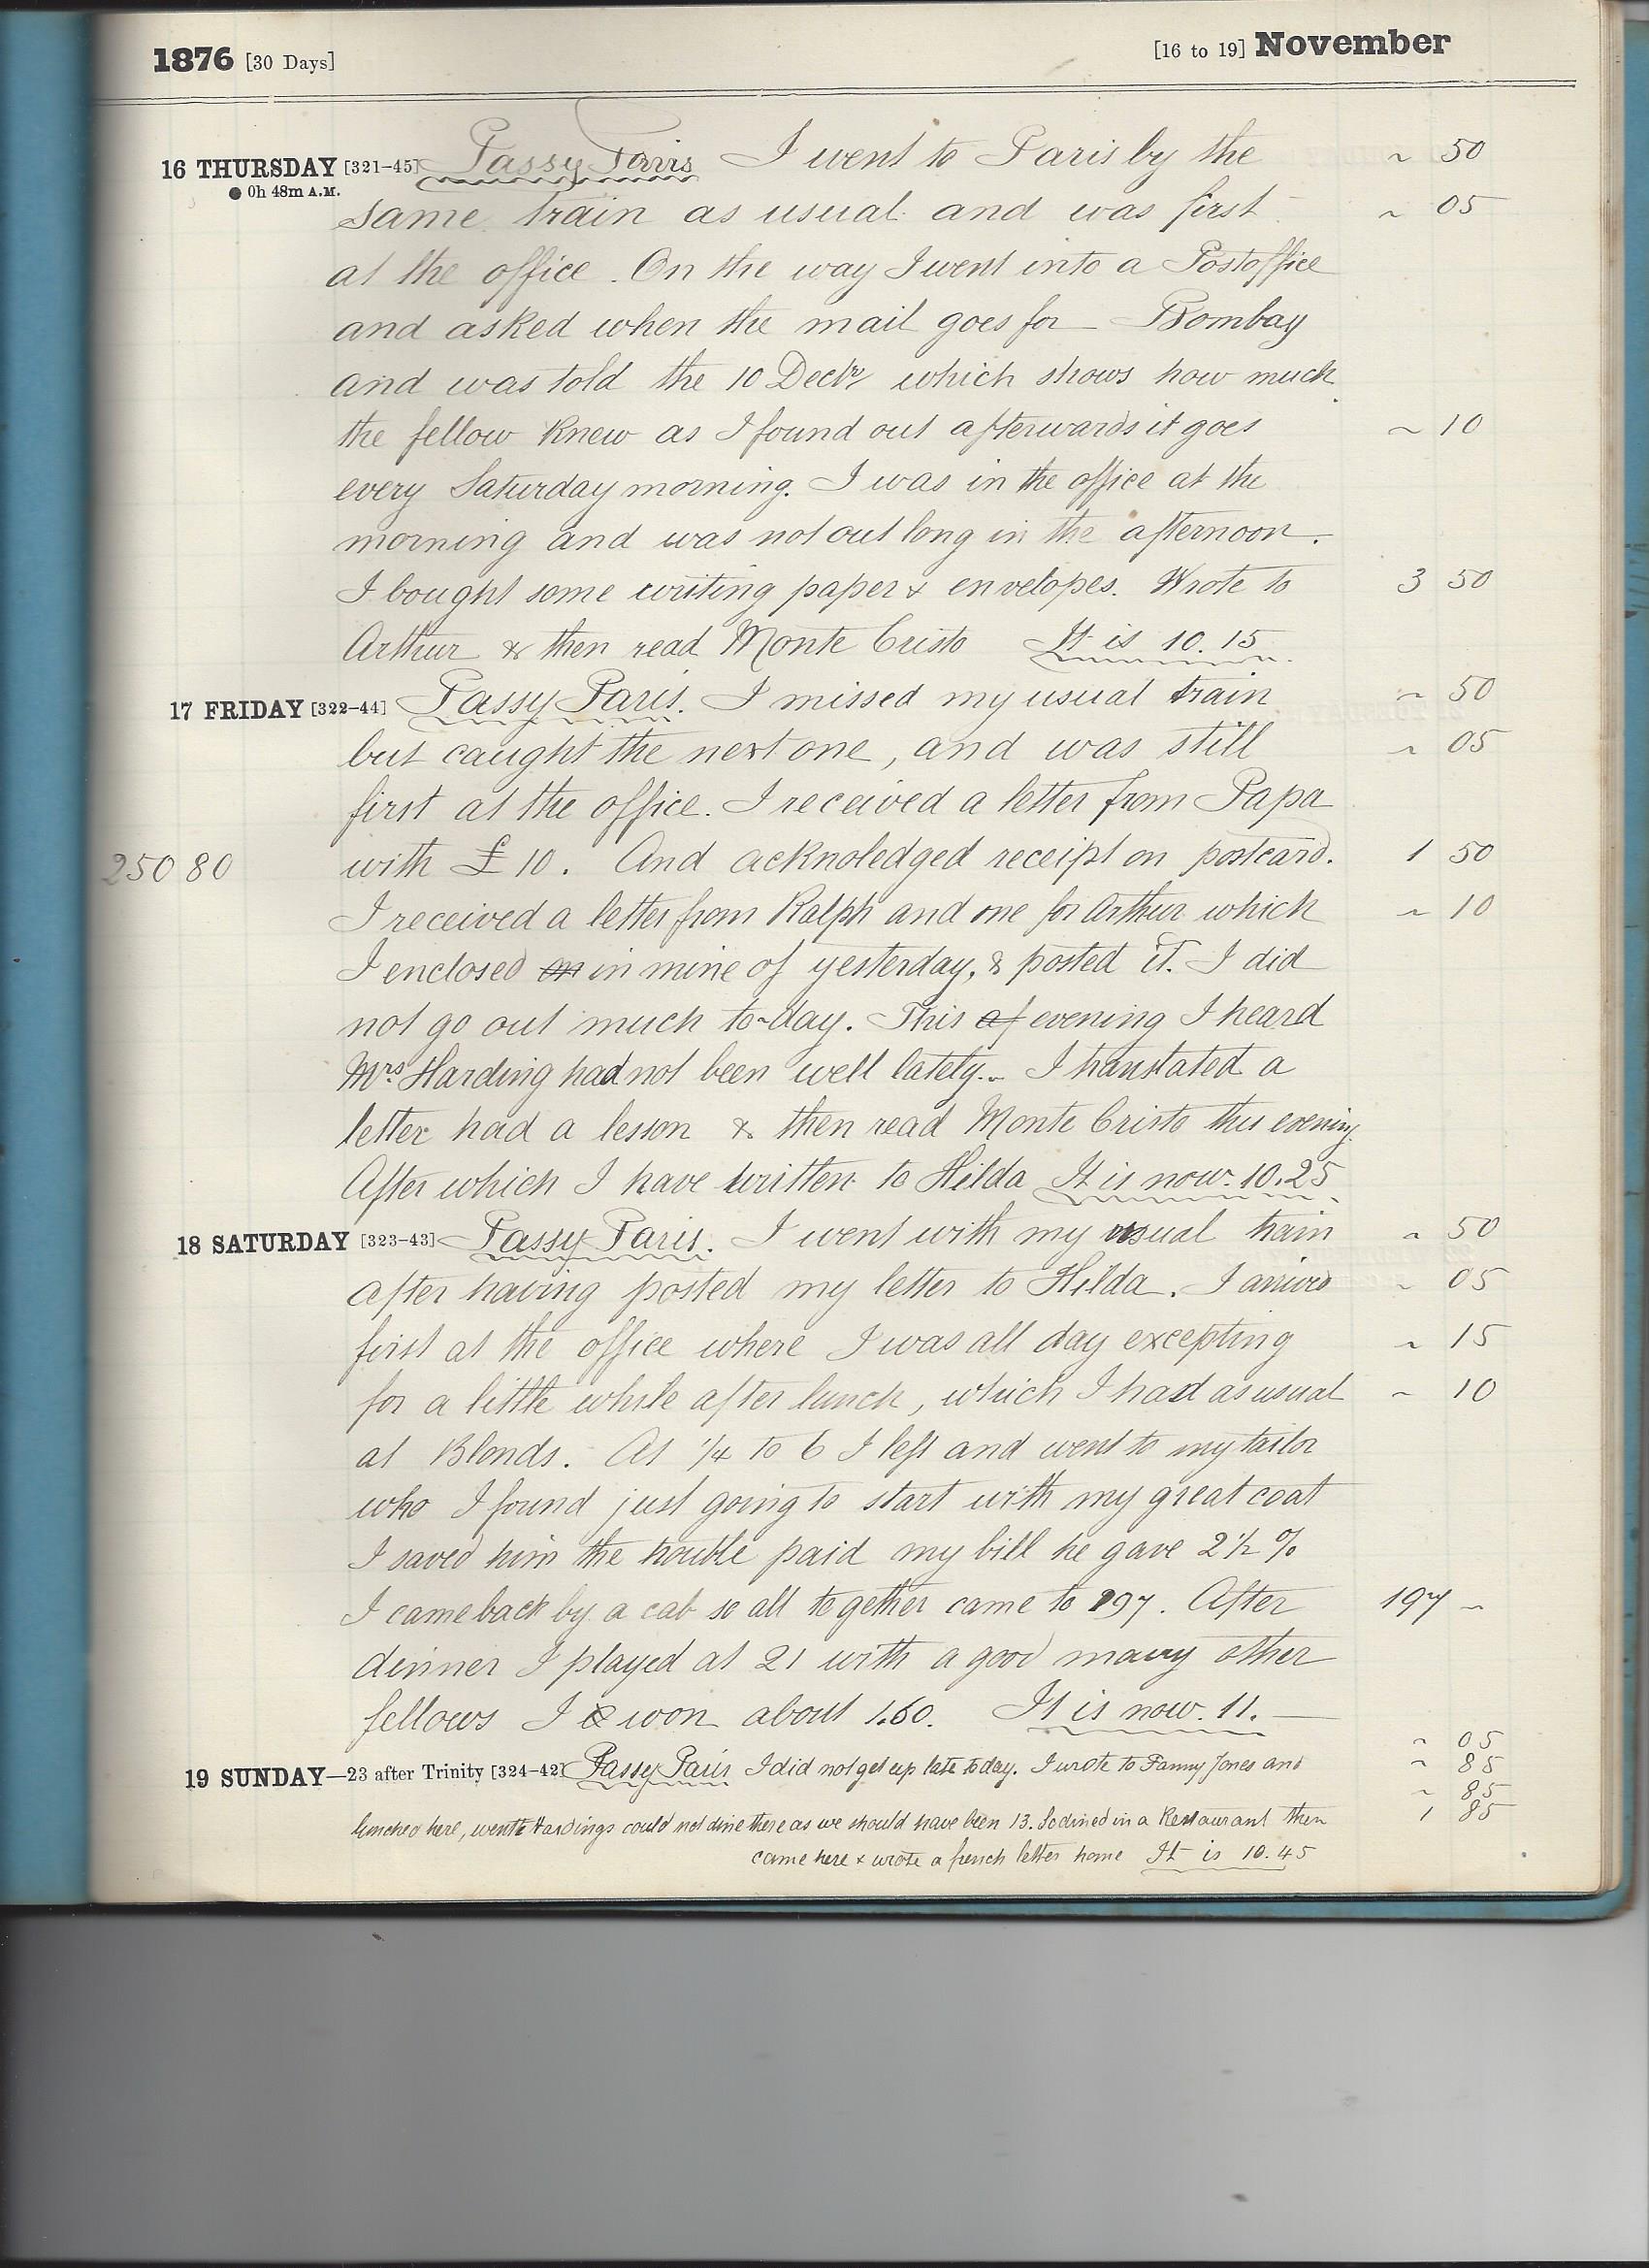 1876 [30 Days] [16 to 19] November
16 THURSDAY [321-45] Passy Paris I went to Paris by the ~ 50
● 0h 48m A.M.
same train as usual and was first ~ 05
at the office. On the way I went into a Postoffice
and asked when the mail goes for Bombay
and was told the 10 Decbr which shows how much
the fellow knew as I found out afterwards it goes ~ 10
every Saturday morning. I was in the office at the
morning and was not out long in the afternoon.
I bought some writing paper & envelopes. Wrote to 3 50
Arthur & then read Monte Cristo It is 10.15
17 FRIDAY [322-44] Passy Paris. I missed my usual train ~ 50
but caught the next one, and was still ~ 05
first at the office. I received a letter from Papa
250 80 with £10. And acknoledged receipt on postcard. 1 50
I received a letter from Ralph and one for Arthur which ~ 10
I enclosed on in mine of yesterday, & posted it. I did
not go out much to-day. This af evening I heard
Mrs. Harding had not been well lately. I translated a
letter had a lesson & then read Monte Cristo this evening.
After which I have written to Hilda It is now 10.25
18 SATURDAY [323-43] Passy Paris. I went with my usual train ~ 50
after having posted my letter to Hilda. I arrived ~ 05
first at the office where I was all day excepting ~ 15
for a little while after lunch, which I had as usual ~ 10
at Blonds. At 1/4 to 6 I left and went to my tailor
who I found just going to start with my great coat
I saved him the trouble paid my bill he gave 2 1/2 %
I came back by a cab so all together came to 197. After 197 ~
dinner I played at 21 with a good many other
fellows I won about 1.60. It is now 11.
~ 05
19 SUNDAY—23 after Trinity [324-42] Passy Paris I did not get up late today. I wrote to Fanny Jones and ~ 85
~ 85
lunched here, went to Hardings could not dine there as we should have been 13. So dined in a Restaurant then 1 85
came here & wrote a french letter home It is 10.45